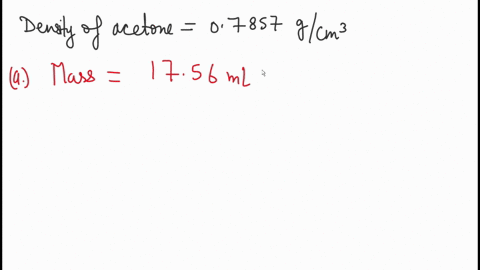 Density of acetone = 0.7857 g/cm³
(a.) Mass = 17.56 mL